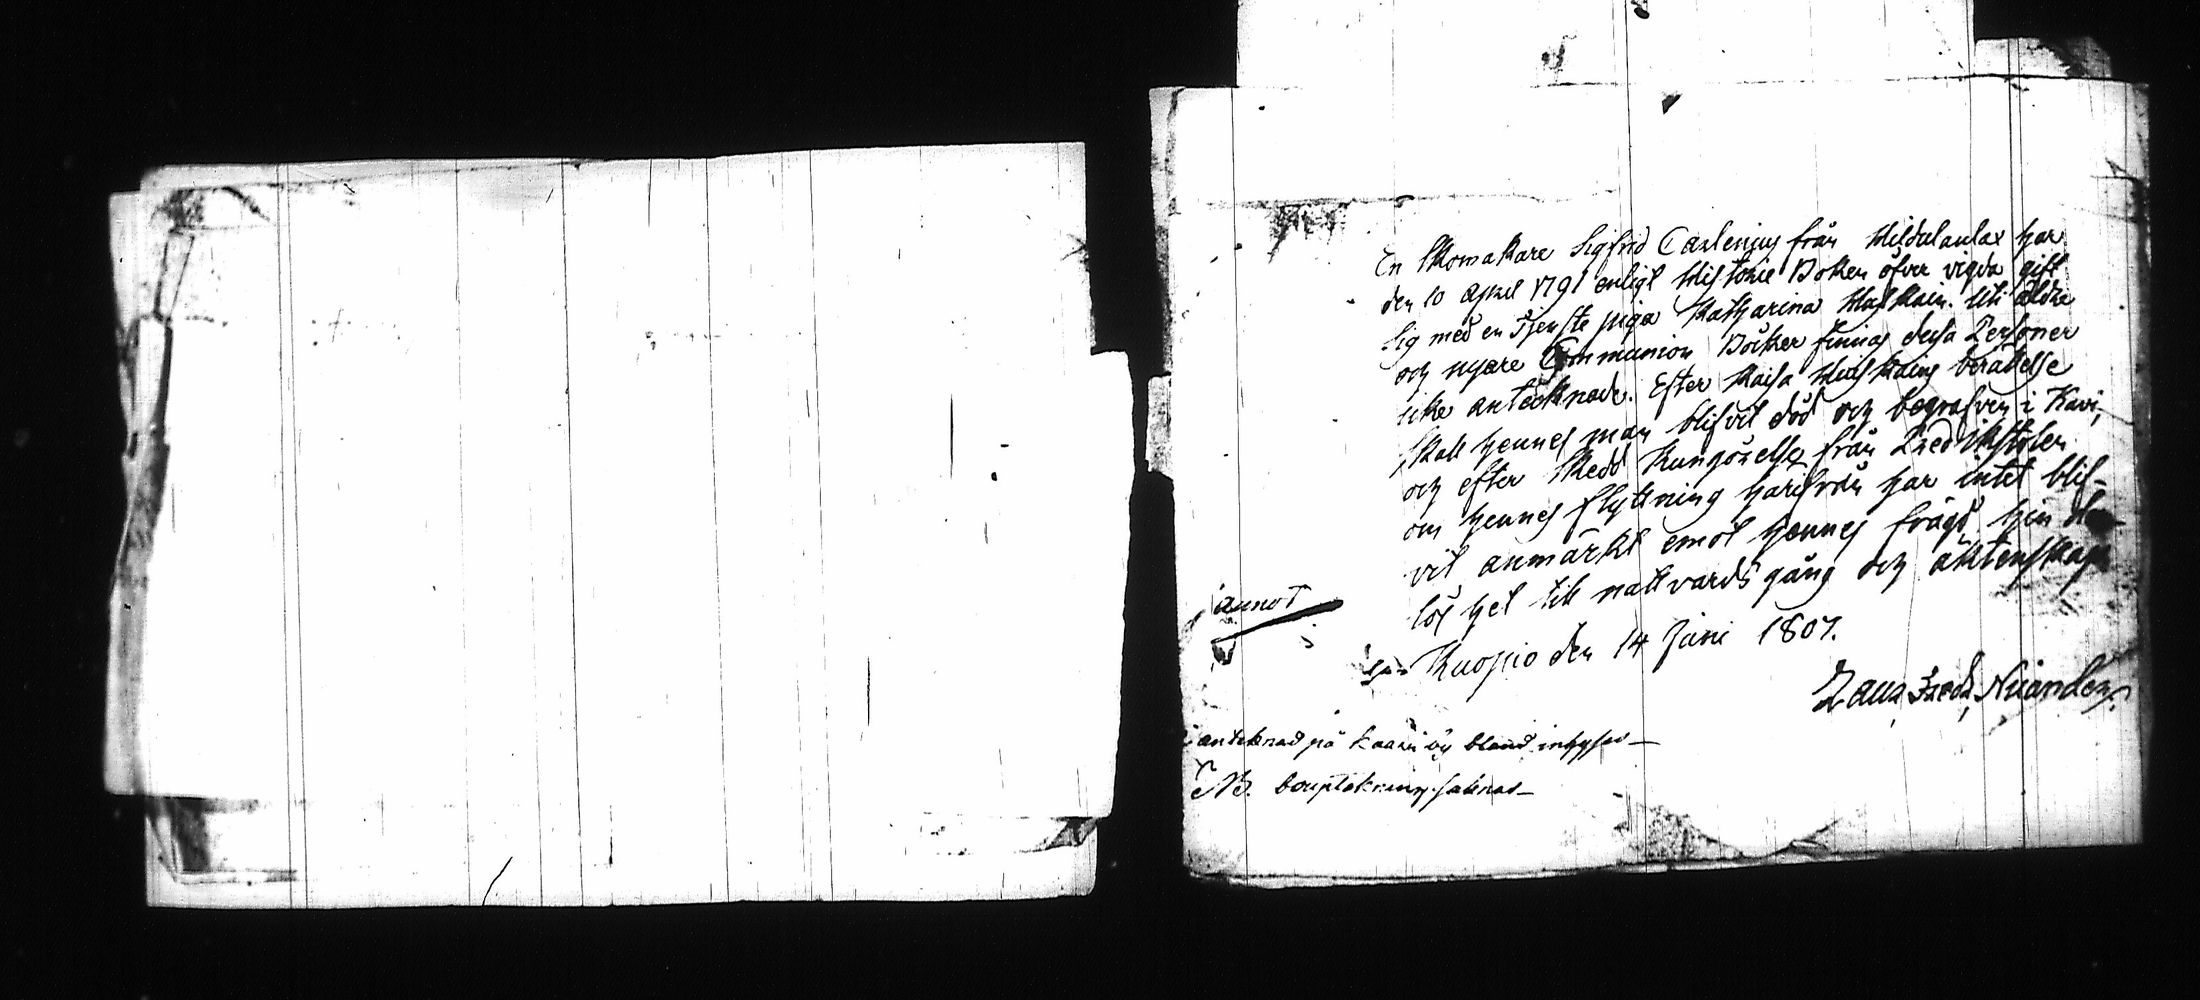 En Skomakare Sigfrid Carlenius från Hildulanlax har
den 10 April 1791 enligt Historie Boken öfver vigda gift
sig med en Tjenste piga Katharina Haskain. Uti äldre
och nyare Communion Böcker finnas dessa Personer
icke antecknade. Efter Kaisa Huskains berättelse
skall hennes man blifvit död och begrafven i Kavi,
och efter skedd kungörelse från Predikstolen
om hennes flyttning härifrån har intet blif-
vit anmärkt emot hennes frägd, hin der
lös het till nattvards gång och äktenskap
Kuopio den 14 Juni 1807.
Laur. Fredr. Niander.
annot
anteknad på Kaavi by bland inhyses
NB. bouptekning saknas